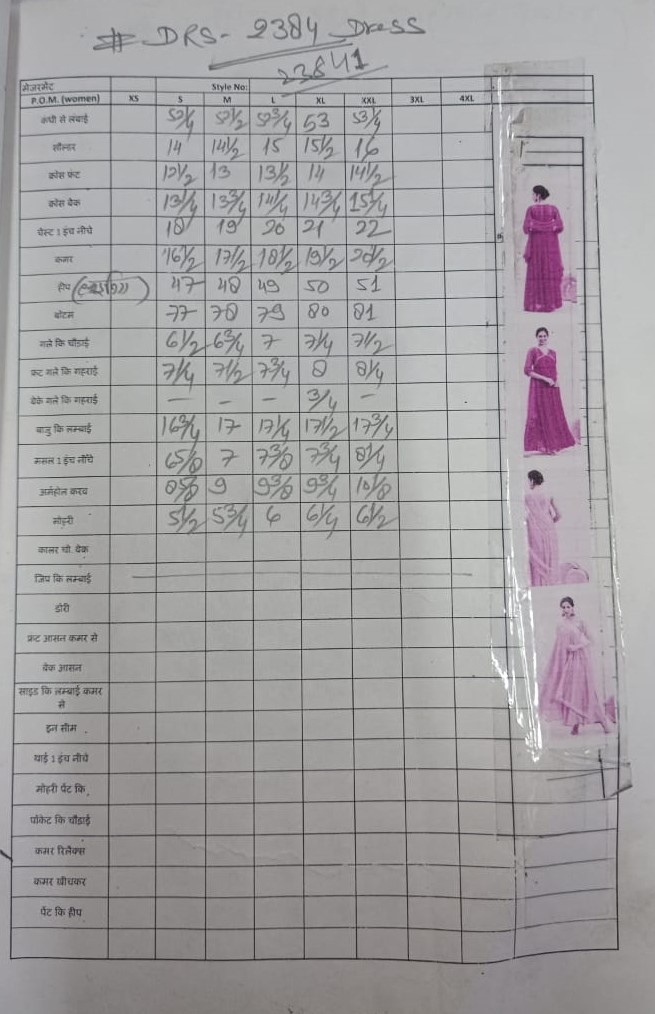 # DRS- 2384 Dress
23841
मेजरमेंट Style No:
P.O.M. (women) XS S M L XL XXL 3XL 4XL
कंधे से लंबाई 52 1/4 52 1/2 52 3/4 53 53 1/4
सोल्डर 14 14 1/2 15 15 1/2 16
क्रोस फ्रंट 12 1/2 13 13 1/2 14 14 1/2
क्रोस बेक 13 1/4 13 3/4 14 1/4 14 3/4 15 1/4
चेस्ट 1 इंच नीचे 18 19 20 21 22
कमर 16 1/2 17 1/2 18 1/2 19 1/2 20 1/2
हीप 47 48 49 50 51
बोटम 77 78 79 80 81
गले कि चौंडाई 6 1/2 6 3/4 7 7 1/4 7 1/2
फ्रंट गले कि गहराई 7 1/4 7 1/2 7 3/4 8 8 1/4
बेक गले कि गहराई — — — 3/4 —
बाजु कि लम्बाई 16 3/4 17 17 1/4 17 1/2 17 3/4
मसल 1 इंच नीचे 6 5/8 7 7 3/8 7 3/4 8 1/4
आर्महोल करव 8 5/8 9 9 3/8 9 3/4 10 1/8
मोहरी 5 1/2 5 3/4 6 6 1/4 6 1/2
कालर चौ. बेक
जिप कि लम्बाई
डोरी
फ्रंट आसन कमर से
बेक आसन
साइड कि लम्बाई कमर
से
इन सीम
थाई 1 इंच नीचे
मोहरी पेंट कि
पॉकेट कि चौंडाई
कमर रिलैक्स
कमर खीचकर
पेंट कि हीप